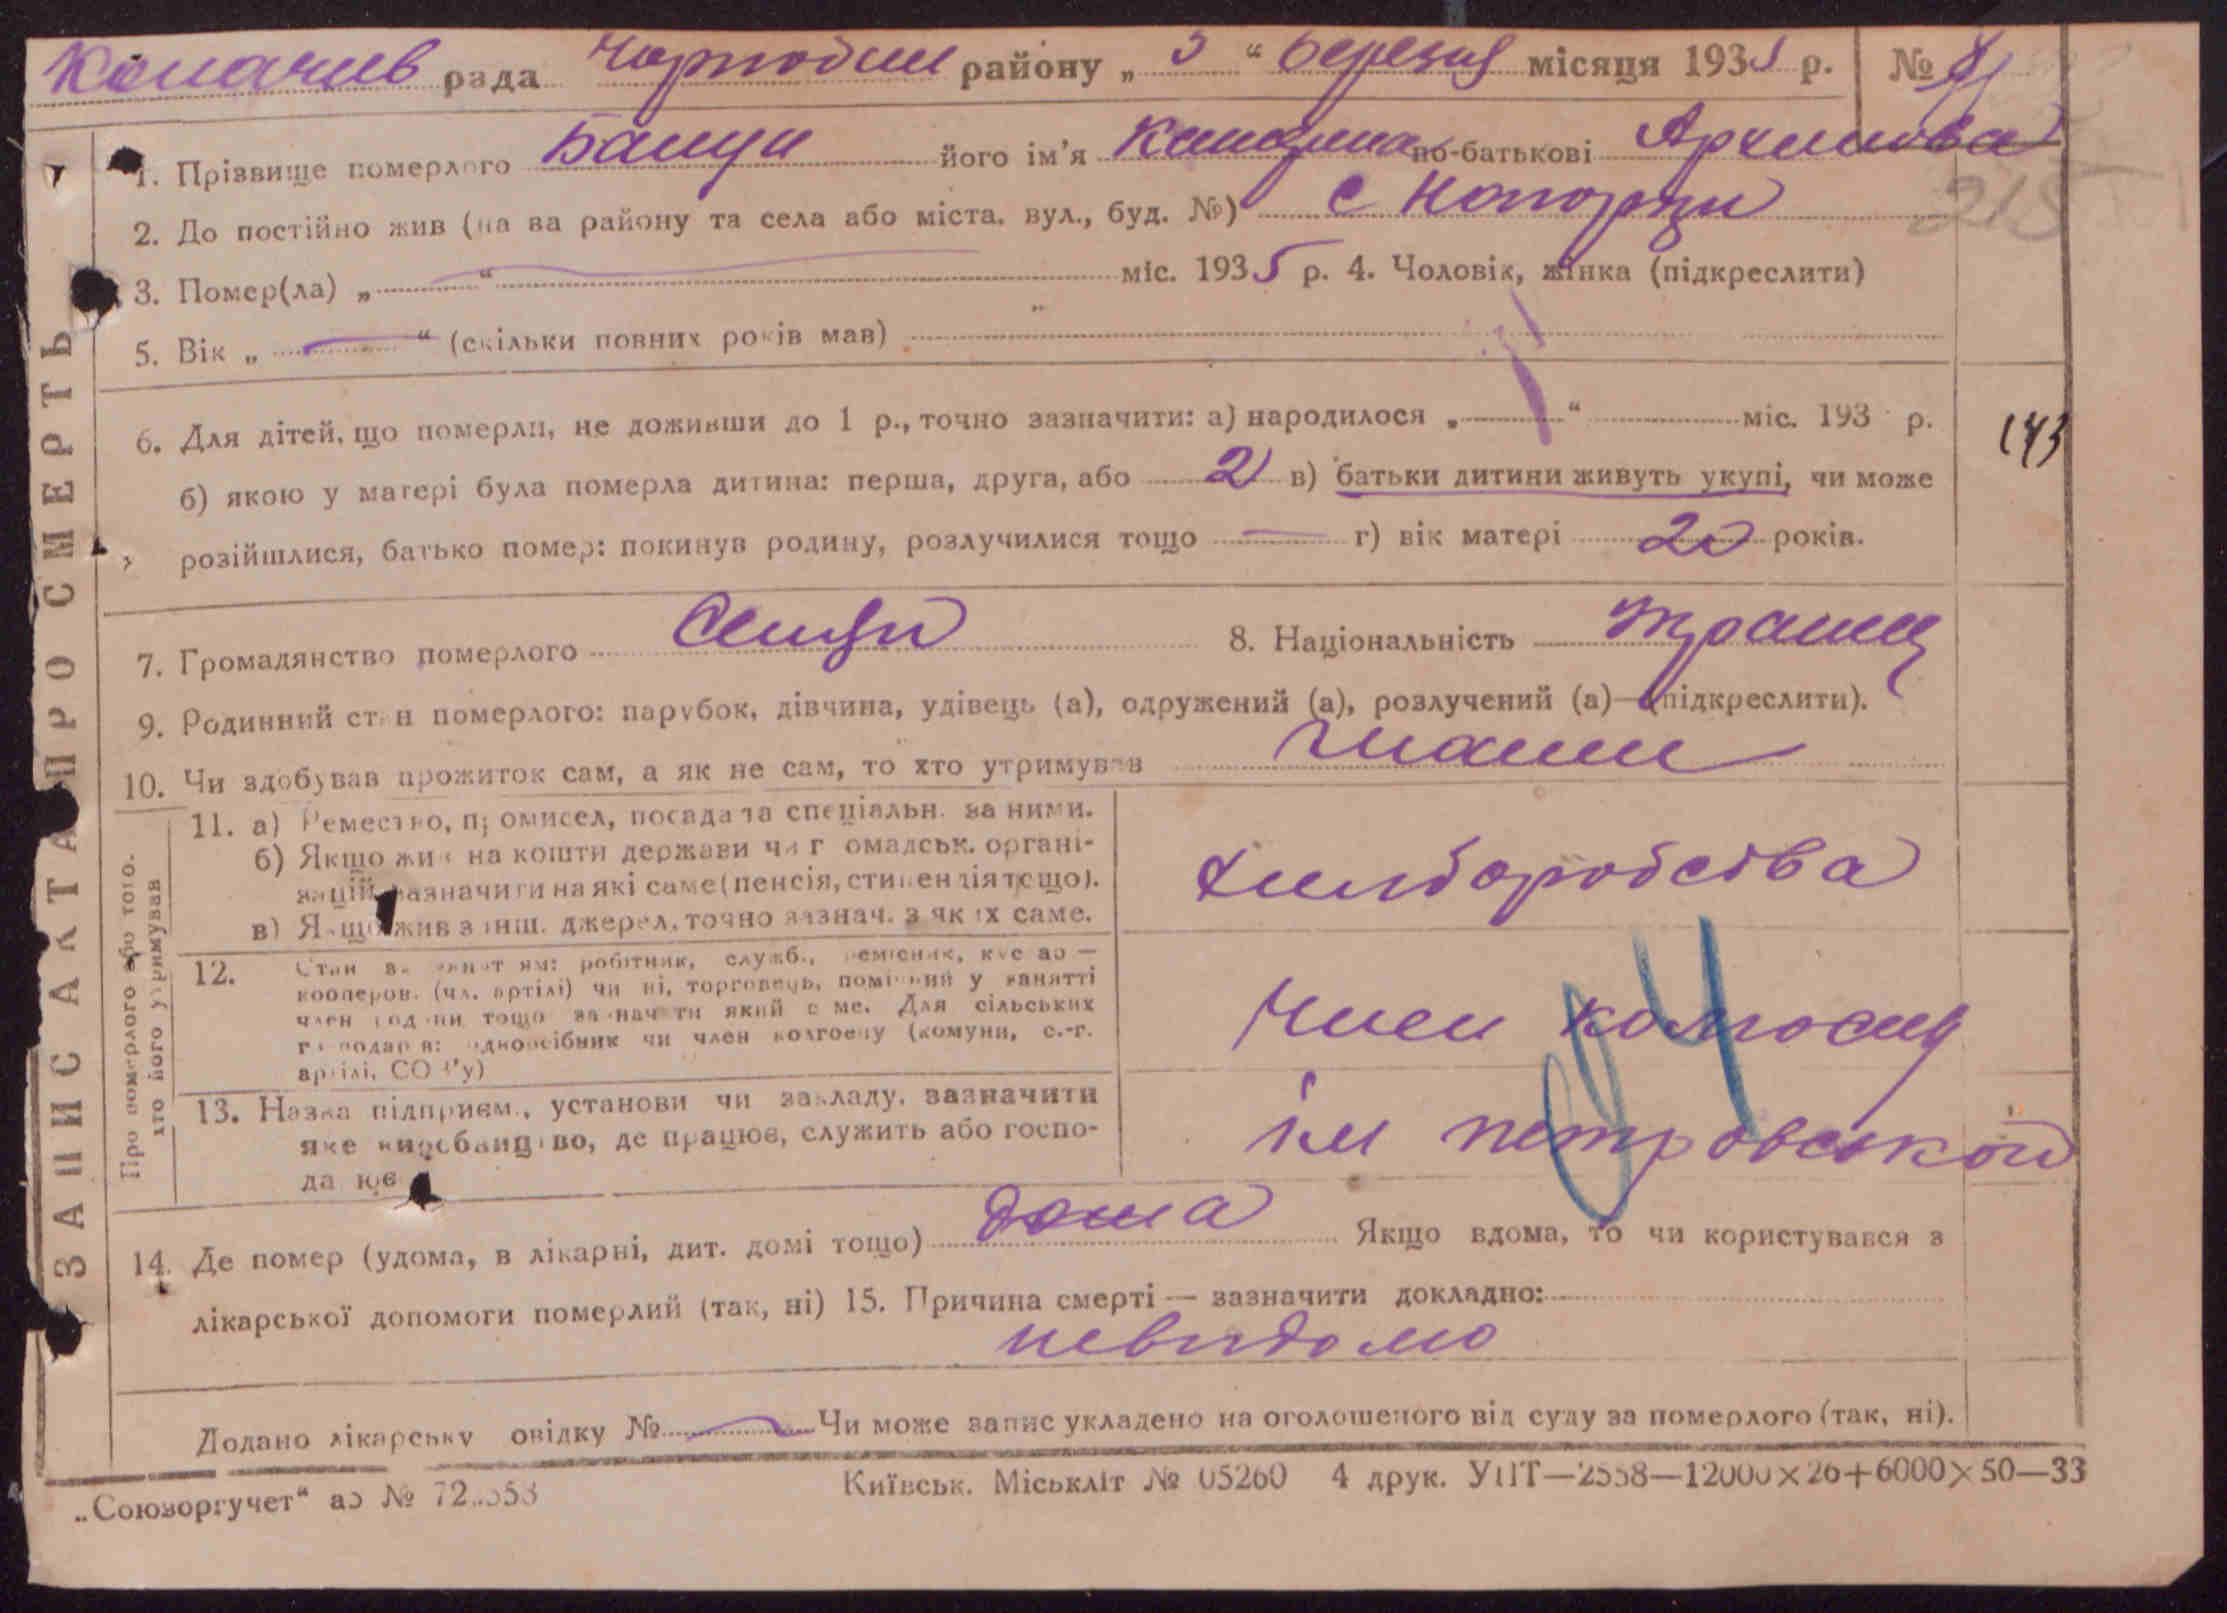 Копачив рада Чорнобил району „ 5 “ березня місяця 1935 р. №
1. Прізвище померлого його ім’я по-батькові Архипова
2. До постійно жив (на ва району та села або міста. вул., буд. №) с
3. Помер(ла) „ “ міс. 1935 р. 4. Чоловік, жінка (підкреслити)
5. Вік „ “ (скільки повних років мав)
6. Для дітей, що померли, не доживши до 1 р., точно зазначити: а) народилося „ “ міс. 193 р.
143
б) якою у матері була померла дитина: перша, друга, або 2 в) батьки дитини живуть укупі, чи може
розійшлися, батько помер: покинув родину, розлучилися тощо — г) вік матері 20 років.
7. Громадянство померлого 8. Національність
9. Родинний стан померлого: парубок, дівчина, удівець (а), одружений (а), розлучений (а)—(підкреслити).
10. Чи здобував прожиток сам, а як не сам, то хто утримував
Про померлого або того.
хто його утримував
11. а) Ремество, промисел, посада та спеціальн. за ними.
б) Якщо жив на кошти держави чи громадськ. органі-
зацій зазначити на які саме (пенсія, стипендія тощо).
в) Якщо жив з інш. джерел, точно зазнач. з яких саме.
хлиборобства
12. Стан в занятт ям: робітник, служб., ремісник, кустар —
кооперов. (чл. артілі) чи ні, торговець, помічний у занятті
член родини тощо зазначити який саме. Для сільських
господарів: одноосібник чи член колгоспу (комуни, с.-г.
артілі, СОЗ’у)
Член колгоспу
13. Назва підприєм., установи чи закладу, зазначити
яке виробництво, де працює, служить або госпо-
да рює
ім петровського
14. Де помер (удома, в лікарні, дит. домі тощо) дома Якщо вдома, то чи користувався з
лікарської допомоги померлий (так, ні) 15. Причина смерті — зазначити докладно:
невидомо
Додано лікарську овідку № Чи може запис укладено на оголошеного від суду за померлого (так, ні).
ЗАПИС АКТА ПРО СМЕРТЬ
„Союзоргучет“ Київськ. Міськліт № 05260 4 друк. УПТ—2558—12000×26+6000×50—33